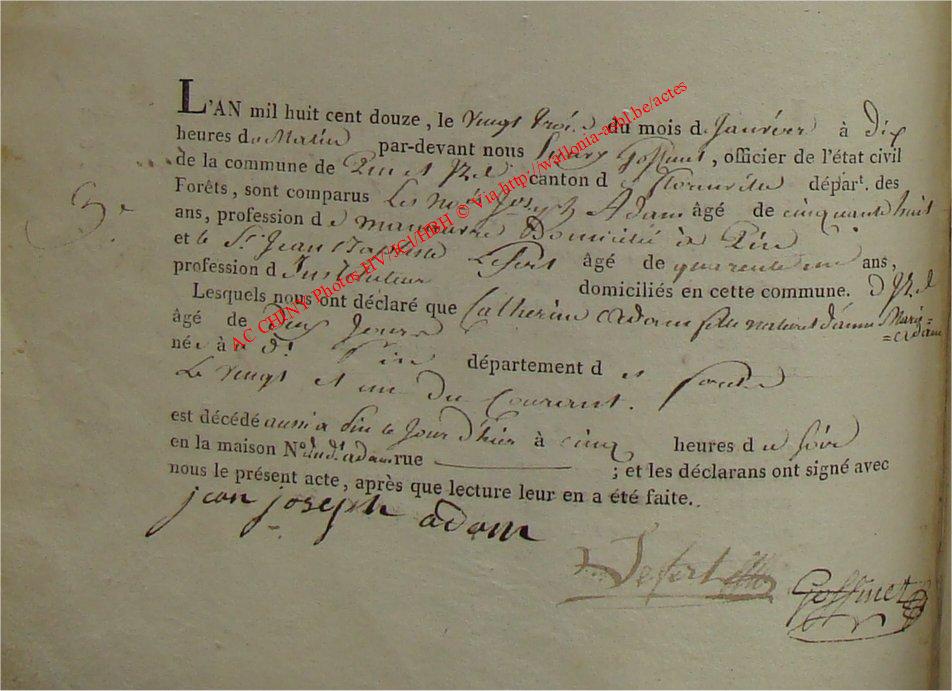 L'AN mil huit cent douze, le vingt trois du mois de Janvier à dix
heures du Matin par-devant nous Goffinet, officier de l'état civil
de la commune de Pin et Izel canton de florenville départ. des
3e
Forêts, sont comparus Les Joseph Adam âgé de cinquante huit
ans, profession de manœuvre Domicilié à Pin
et le Sr. Jean Baptiste Lefort âgé de quarente un ans,
profession d Instituteur domiciliés en cette commune. d'Izel
Lesquels nous ont déclaré que Catherine Adam fille naturel d'anne Marie
=adam
âgé de deux Jours
née à d. Pin département des forêts
Le vingt et un du Courant.
est décédé aussi a Pin le Jour d'hier à cinq heures du soir
en la maison N° dud. adam rue ; et les déclarans ont signé avec
nous le présent acte, après que lecture leur en a été faite.
jean joseph adam
Lefort
Goffinet
AC CHINY Photos HV/JCl/HBH © Via http://wallonia-asbl.be/actes